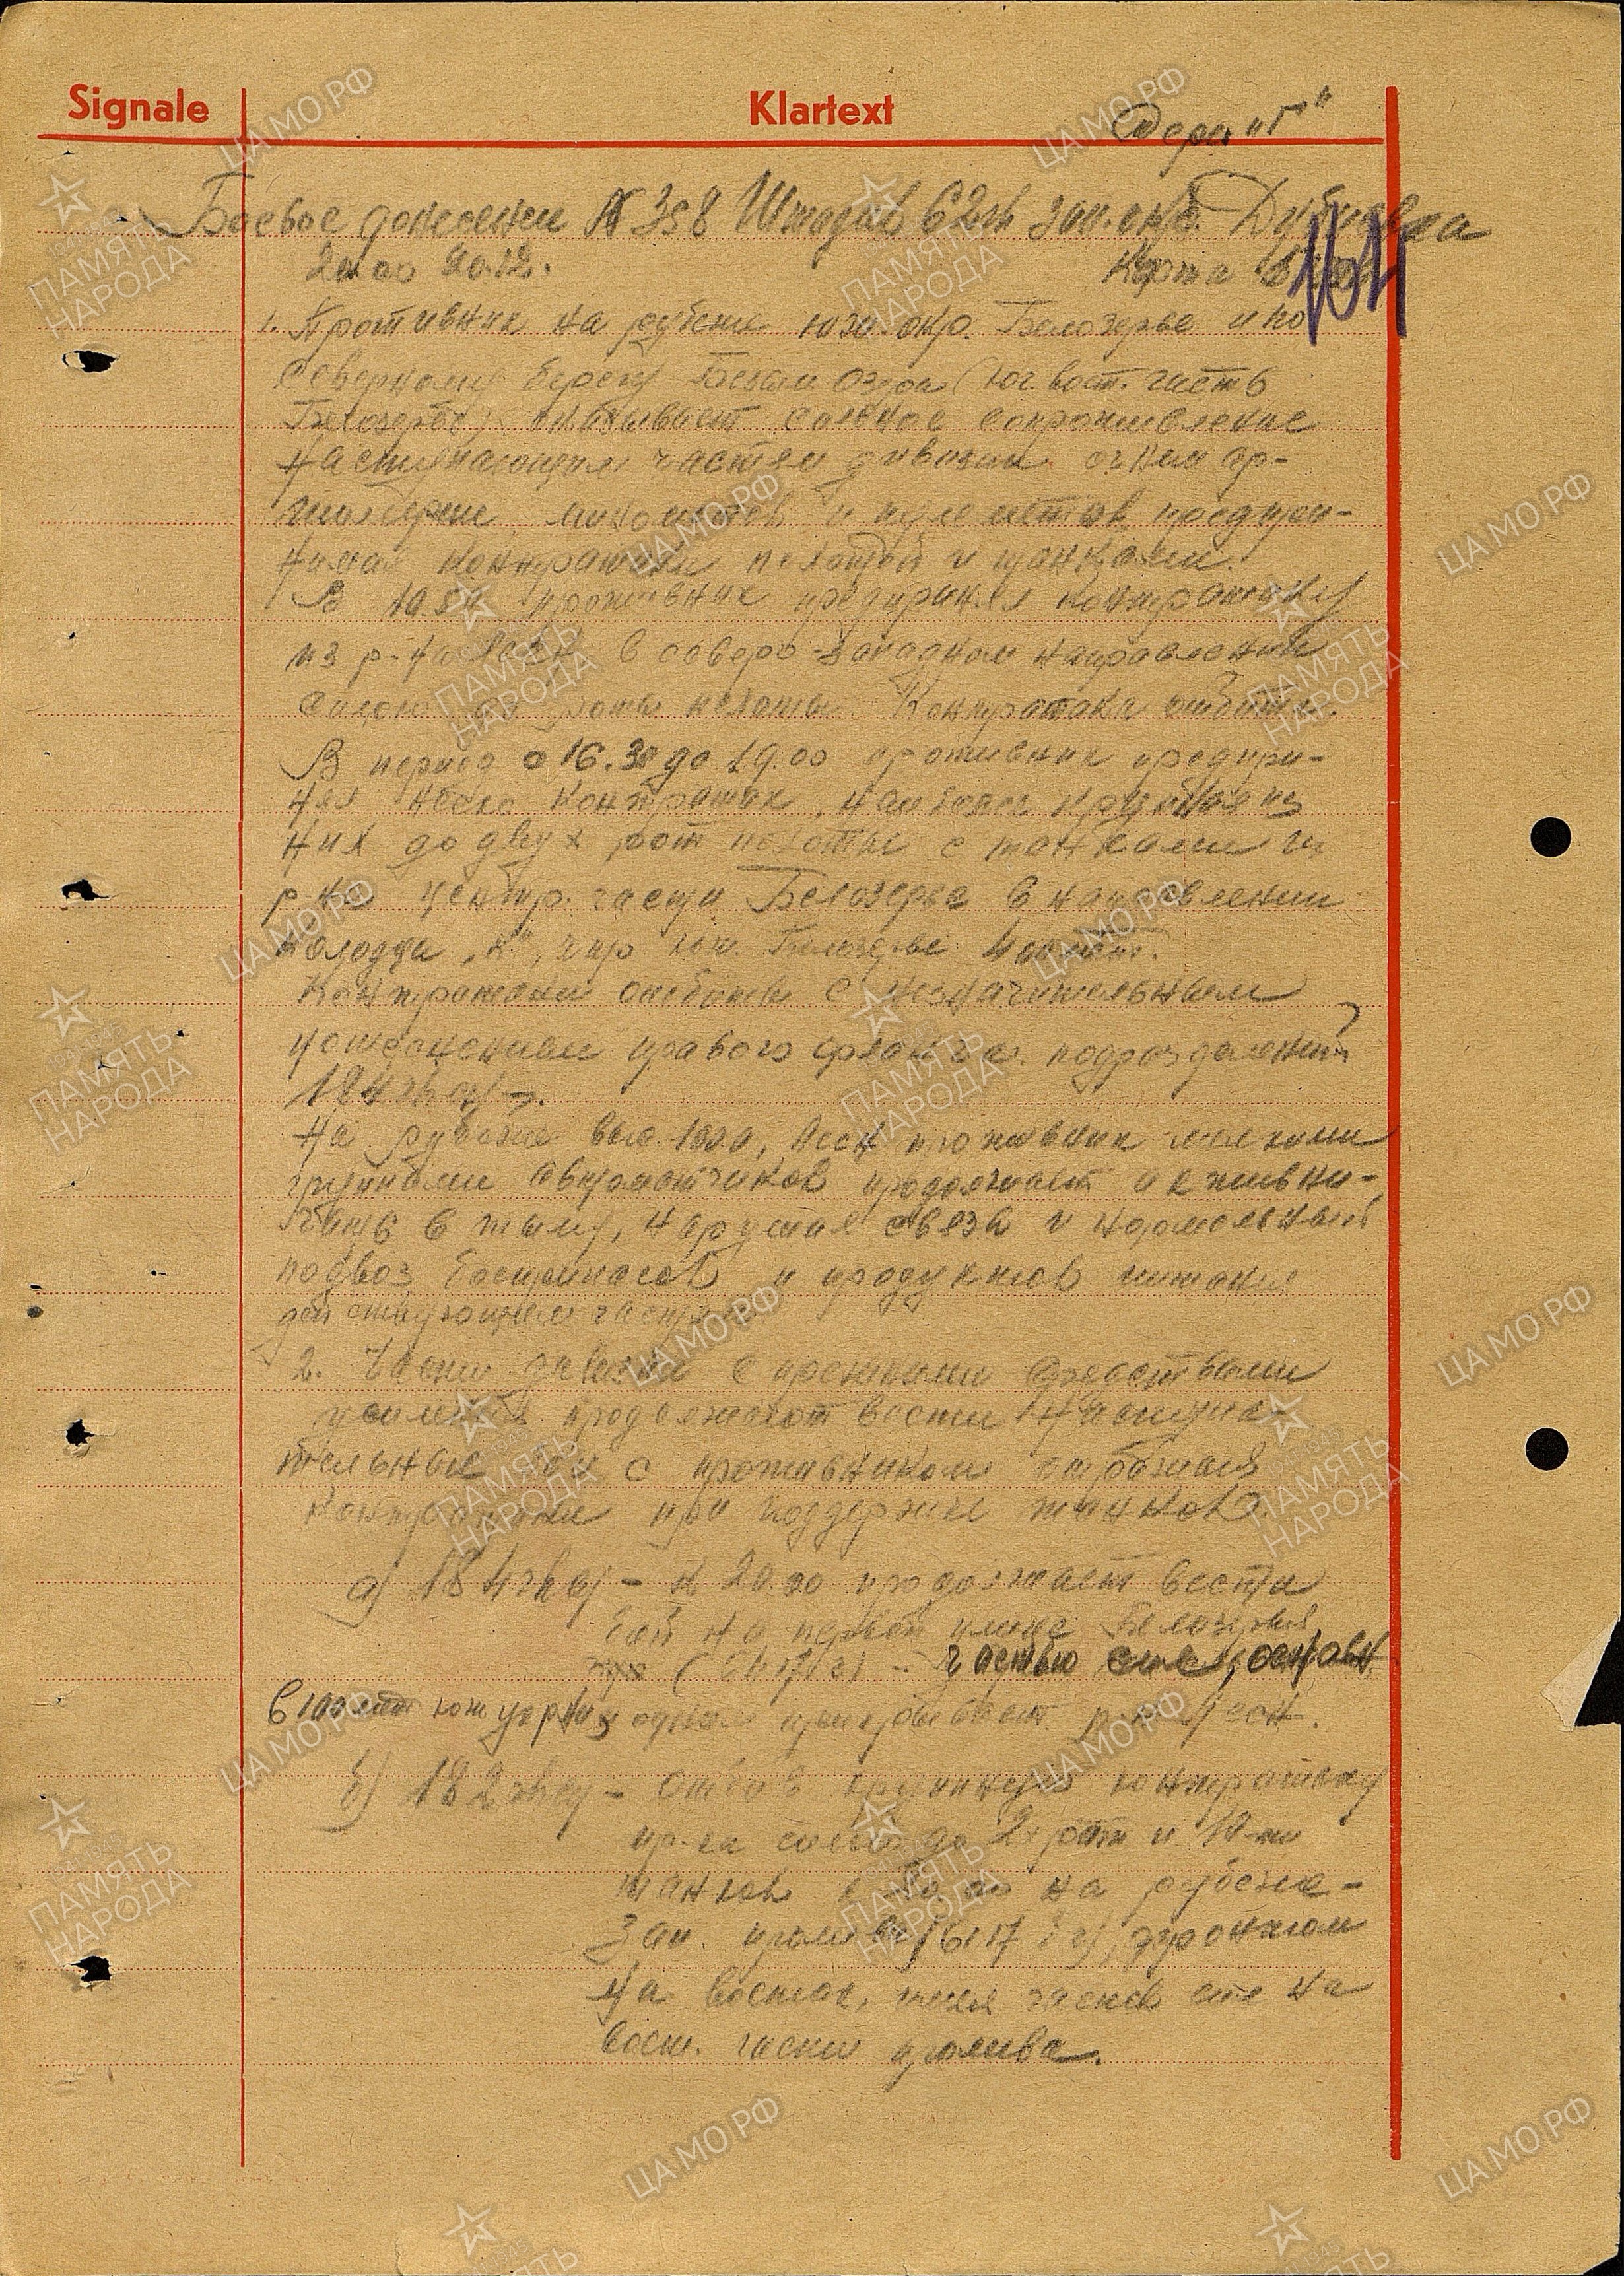 Signale
Klartext
Серия "Г"
Боевое донесение № 358 Штадив 62 гв зап. окр. Дубиевка
20.00 20.12.
Карта
104
1. Противник на рубеже юго-зап. окр. Белозерье и по
северному берегу Белым Озера (юг. вост. часть
Белозерье) оказывает сильное сопротивление
наступающим частям дивизии огнем ар-
тиллерии минометов и пулеметов предпри-
нимая контратаки пехотой и танками.
В противник предпринял контратаку
из р-на в северо-западном направлении
силою роты пехоты. Контратака отбита.
В период с 16.30 до 19.00 противник предпри-
нял контратак, наиболее крупная из
них до двух рот пехоты с танками из
р-на центр. части Белозерье в направлении
колодца „К“, что юж. Белозерье 400 мт.
Контратаки отбиты с незначительным
потеснением правого фланга подразделений
184 гв сп.
На рубеже выс. противник мелкими
группами автоматчиков продолжает активни-
чать в тылу, нарушая связь и нормальный
подвоз боеприпасов и продуктов питания
действующим частям.
2. Части дивизии с прежними средствами
усиления продолжают вести наступа-
тельные бои с противником отбивая
контратаки при поддержке танков.
а) 184 гв сп – к 20.00 продолжает вести
бой на первой улице Белозерья
(6417 с) – частью сил, останов.
в 100 мт юж церкви, одним прикрывает р-н
б) 182 гв сп – отбив крупную контратаку
пр-ка силою до 2х рот и 10-ти
танков на рубеже –
Зап. пролива (6417 ), фронтом
на восток, имея часть сил на
вост. части пролива.
ЦАМО.РФ
ПАМЯТЬ
НАРОДА